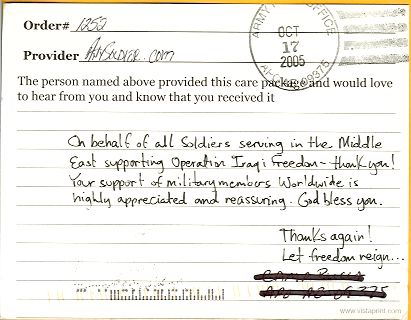 Order# 1352
Provider AnySoldier.com
The person named above provided this care package and would love
to hear from you and know that you received it
ARMY POST OFFICE
OCT
17
2005
APO AE 09375
On behalf of all Soldiers serving in the Middle
East supporting Operation Iraqi Freedom - thank you!
Your support of military members Worldwide is
highly appreciated and reassuring. God bless you.
Thanks again!
Let freedom reign...
APO AE 09375
www.vistaprint.com